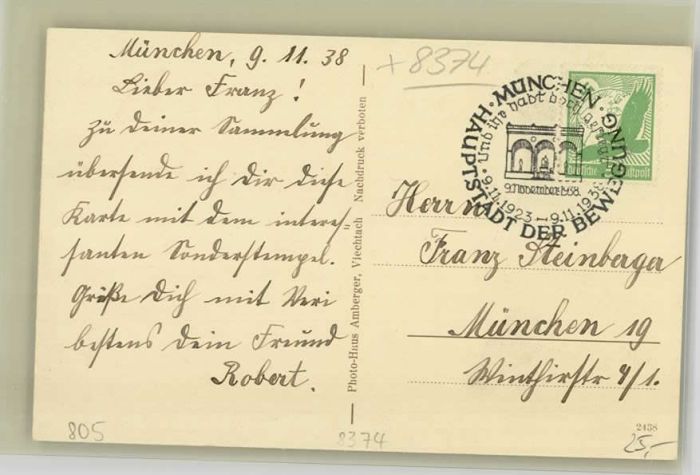 München, 9. 11. 38
Lieber Franz!
Zu deiner Sammlung
übersende ich Dir diese
Karte mit dem interes,,
santen Sonderstempel.
Grüße Dich mit Veri
bestens dein Freund
Robert.
805
Photo-Haus Amberger, Viechtach Nachdruck verboten
8374
+ 8374
· MÜNCHEN ·
HAUPTSTADT DER BEWEGUNG
Und ihr habt doch gesiegt
9. November 1938.
9.11.1923 – 9.11.1938
Deutsche Luftpost
Herrn
Franz Steinberga
München 19
Winthirstr 4/1.
2438
25,-